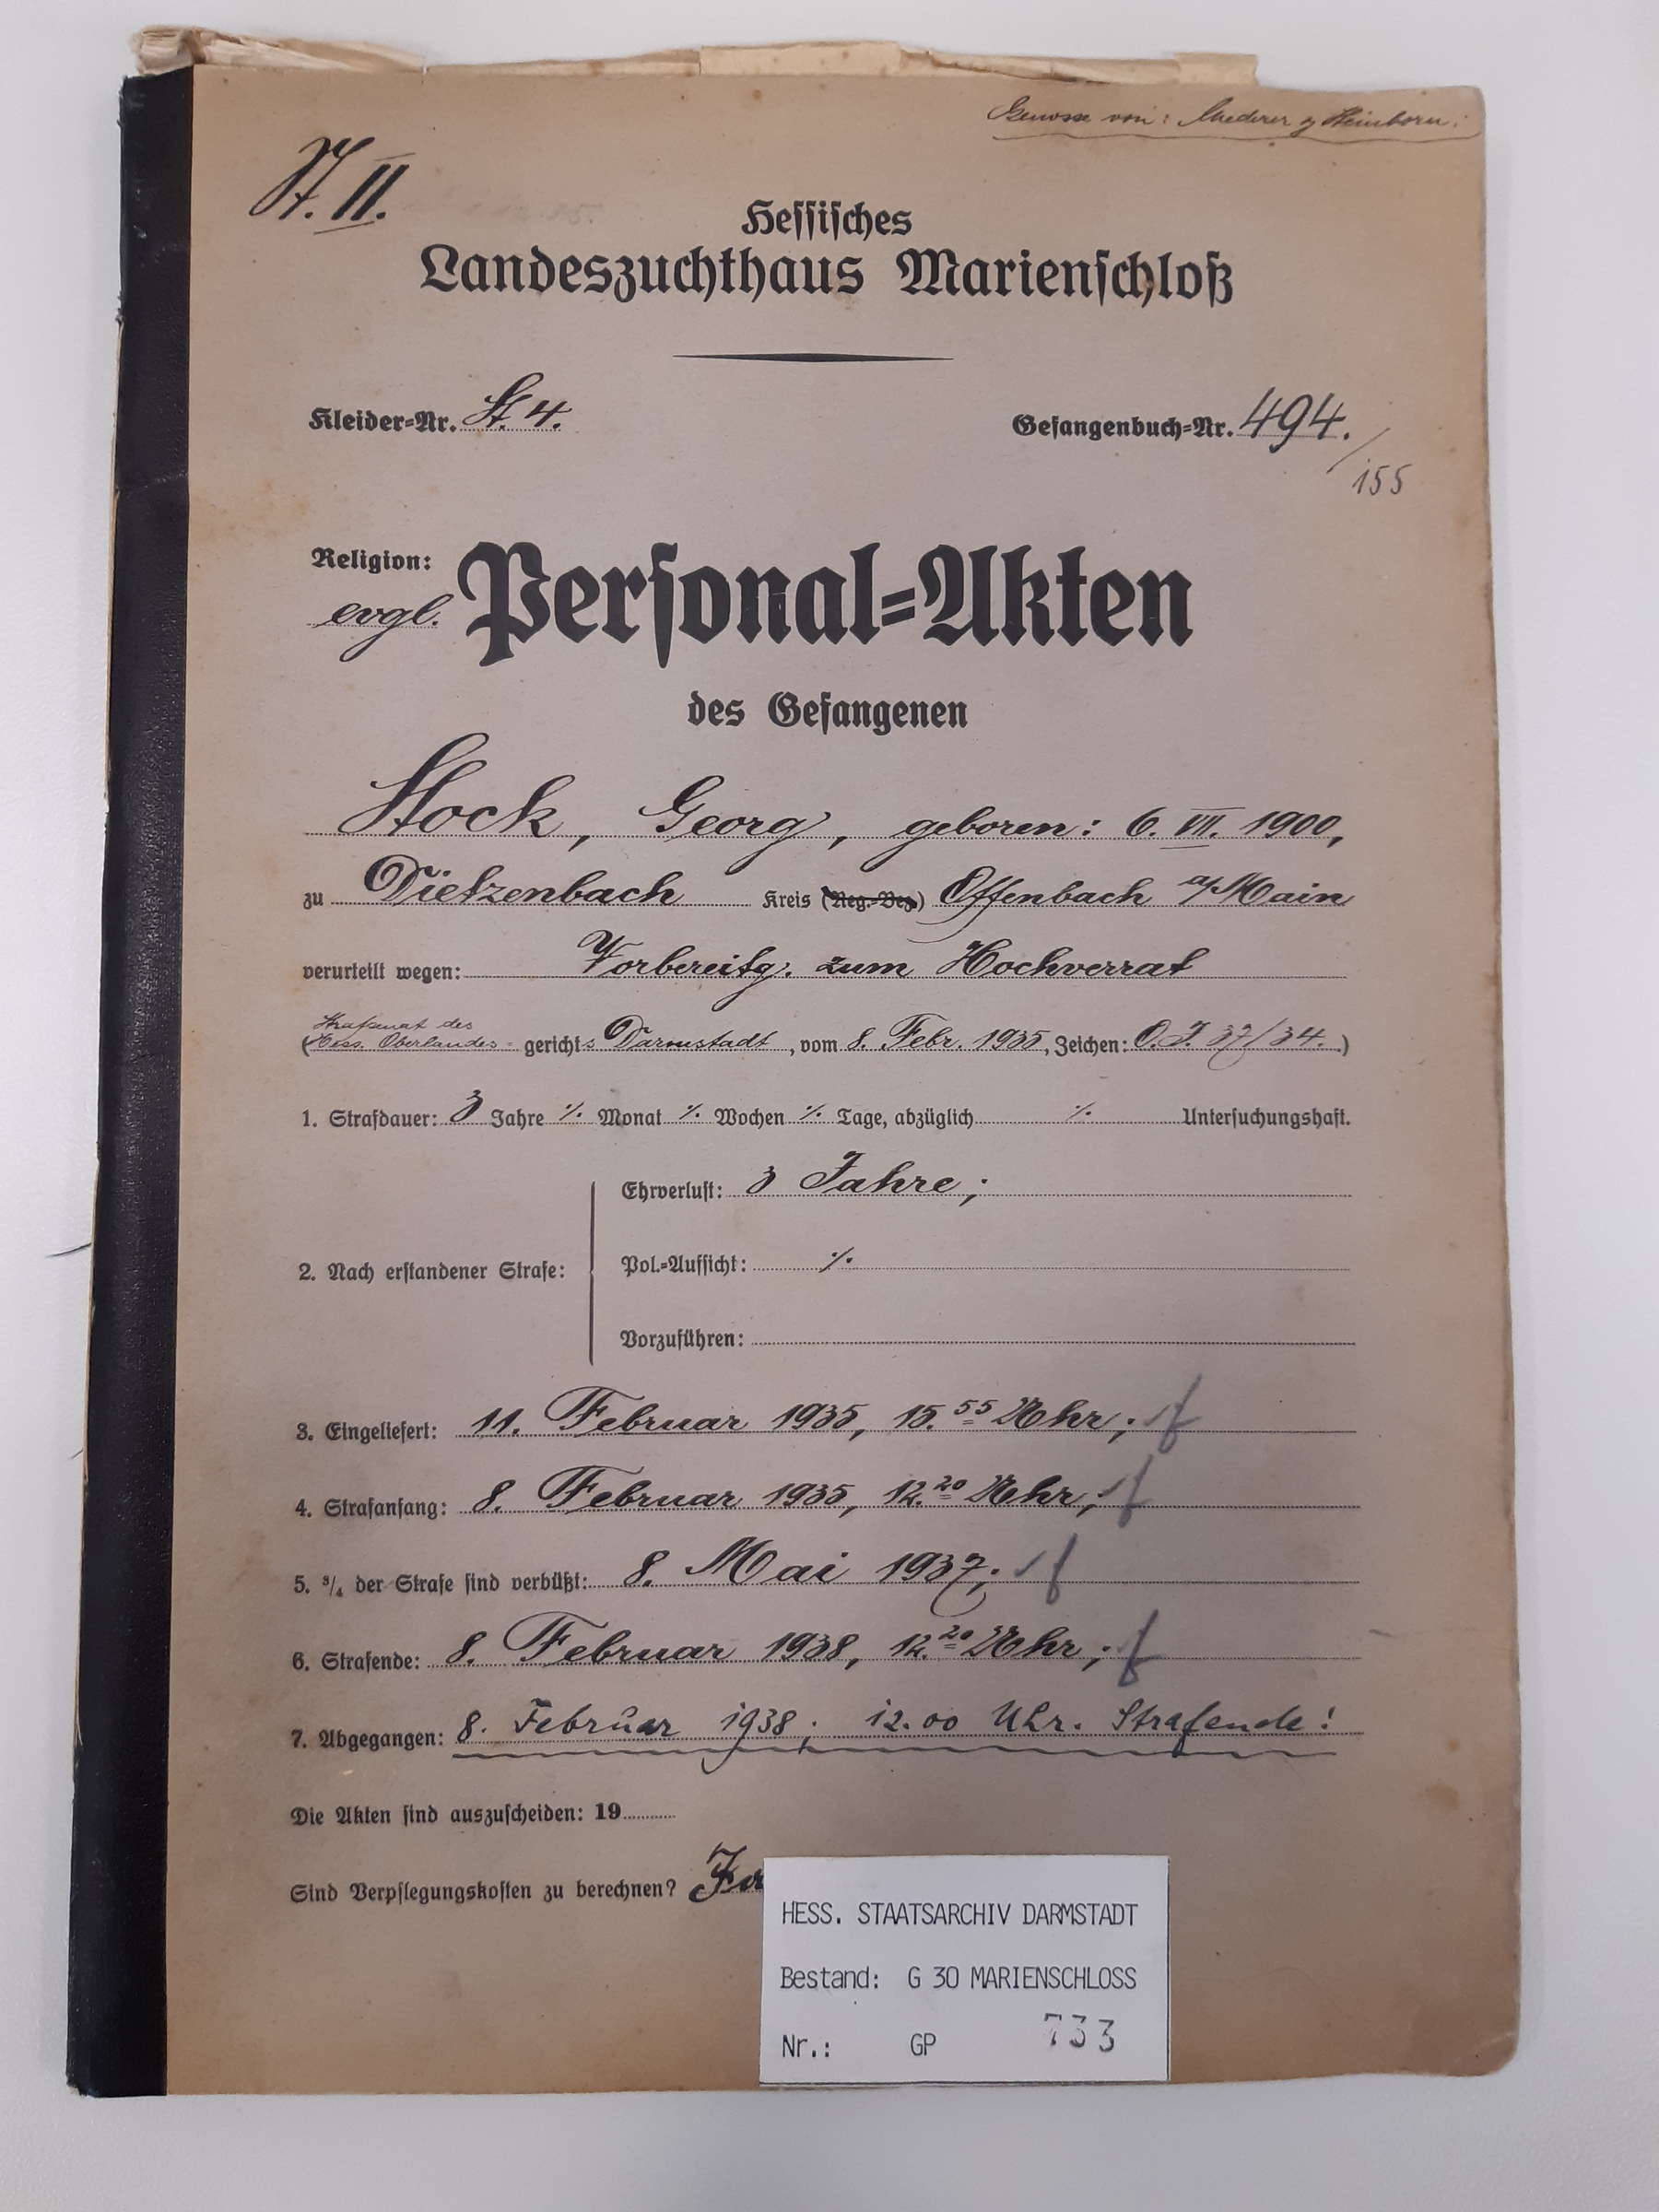 Genosse von:
St. II.
Hessisches
Landeszuchthaus Marienschloß
Kleider=Nr. St. 4.
Gefangenbuch=Nr. 494./155
Religion:
evgl.
Personal=Akten
des Gefangenen
Stock, Georg, geboren: 6. VII. 1900,
zu Dietzenbach Kreis (Reg.=Bez.) Offenbach a/Main
verurteilt wegen: Vorbereitg. zum Hochverrat
Strafsenat des
(Hess. Oberlandes- gerichts Darmstadt, vom 8. Febr. 1935, Zeichen: O.J. 37/34.)
1. Strafdauer: 3 Jahre ·/. Monat ·/. Wochen ·/. Tage, abzüglich ·/. Untersuchungshaft.
Ehrverlust: 3 Jahre;
2. Nach erstandener Strafe: Pol.=Aufsicht: ·/.
Vorzuführen:
3. Eingeliefert: 11. Februar 1935, 15.55 Uhr;
4. Strafanfang: 8. Februar 1935, 12.20 Uhr;
5. 3/4 der Strafe sind verbüßt: 8. Mai 1937;
6. Strafende: 8. Februar 1938, 12.20 Uhr;
7. Abgegangen: 8. Februar 1938; 12.00 Uhr. Strafende!
Die Akten sind auszuscheiden: 19
Sind Verpflegungskosten zu berechnen? Ja
HESS. STAATSARCHIV DARMSTADT
Bestand: G 30 MARIENSCHLOSS
Nr.: GP 733